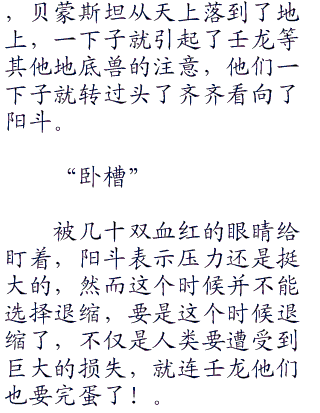 ，贝蒙斯坦从天上落到了地
上，一下子就引起了壬龙等
其他地底兽的注意，他们一
下子就转过头了齐齐看向了
阳斗。
“卧槽”
被几十双血红的眼睛给
盯着，阳斗表示压力还是挺
大的，然而这个时候并不能
选择退缩，要是这个时候退
缩了，不仅是人类要遭受到
巨大的损失，就连壬龙他们
也要完蛋了！。